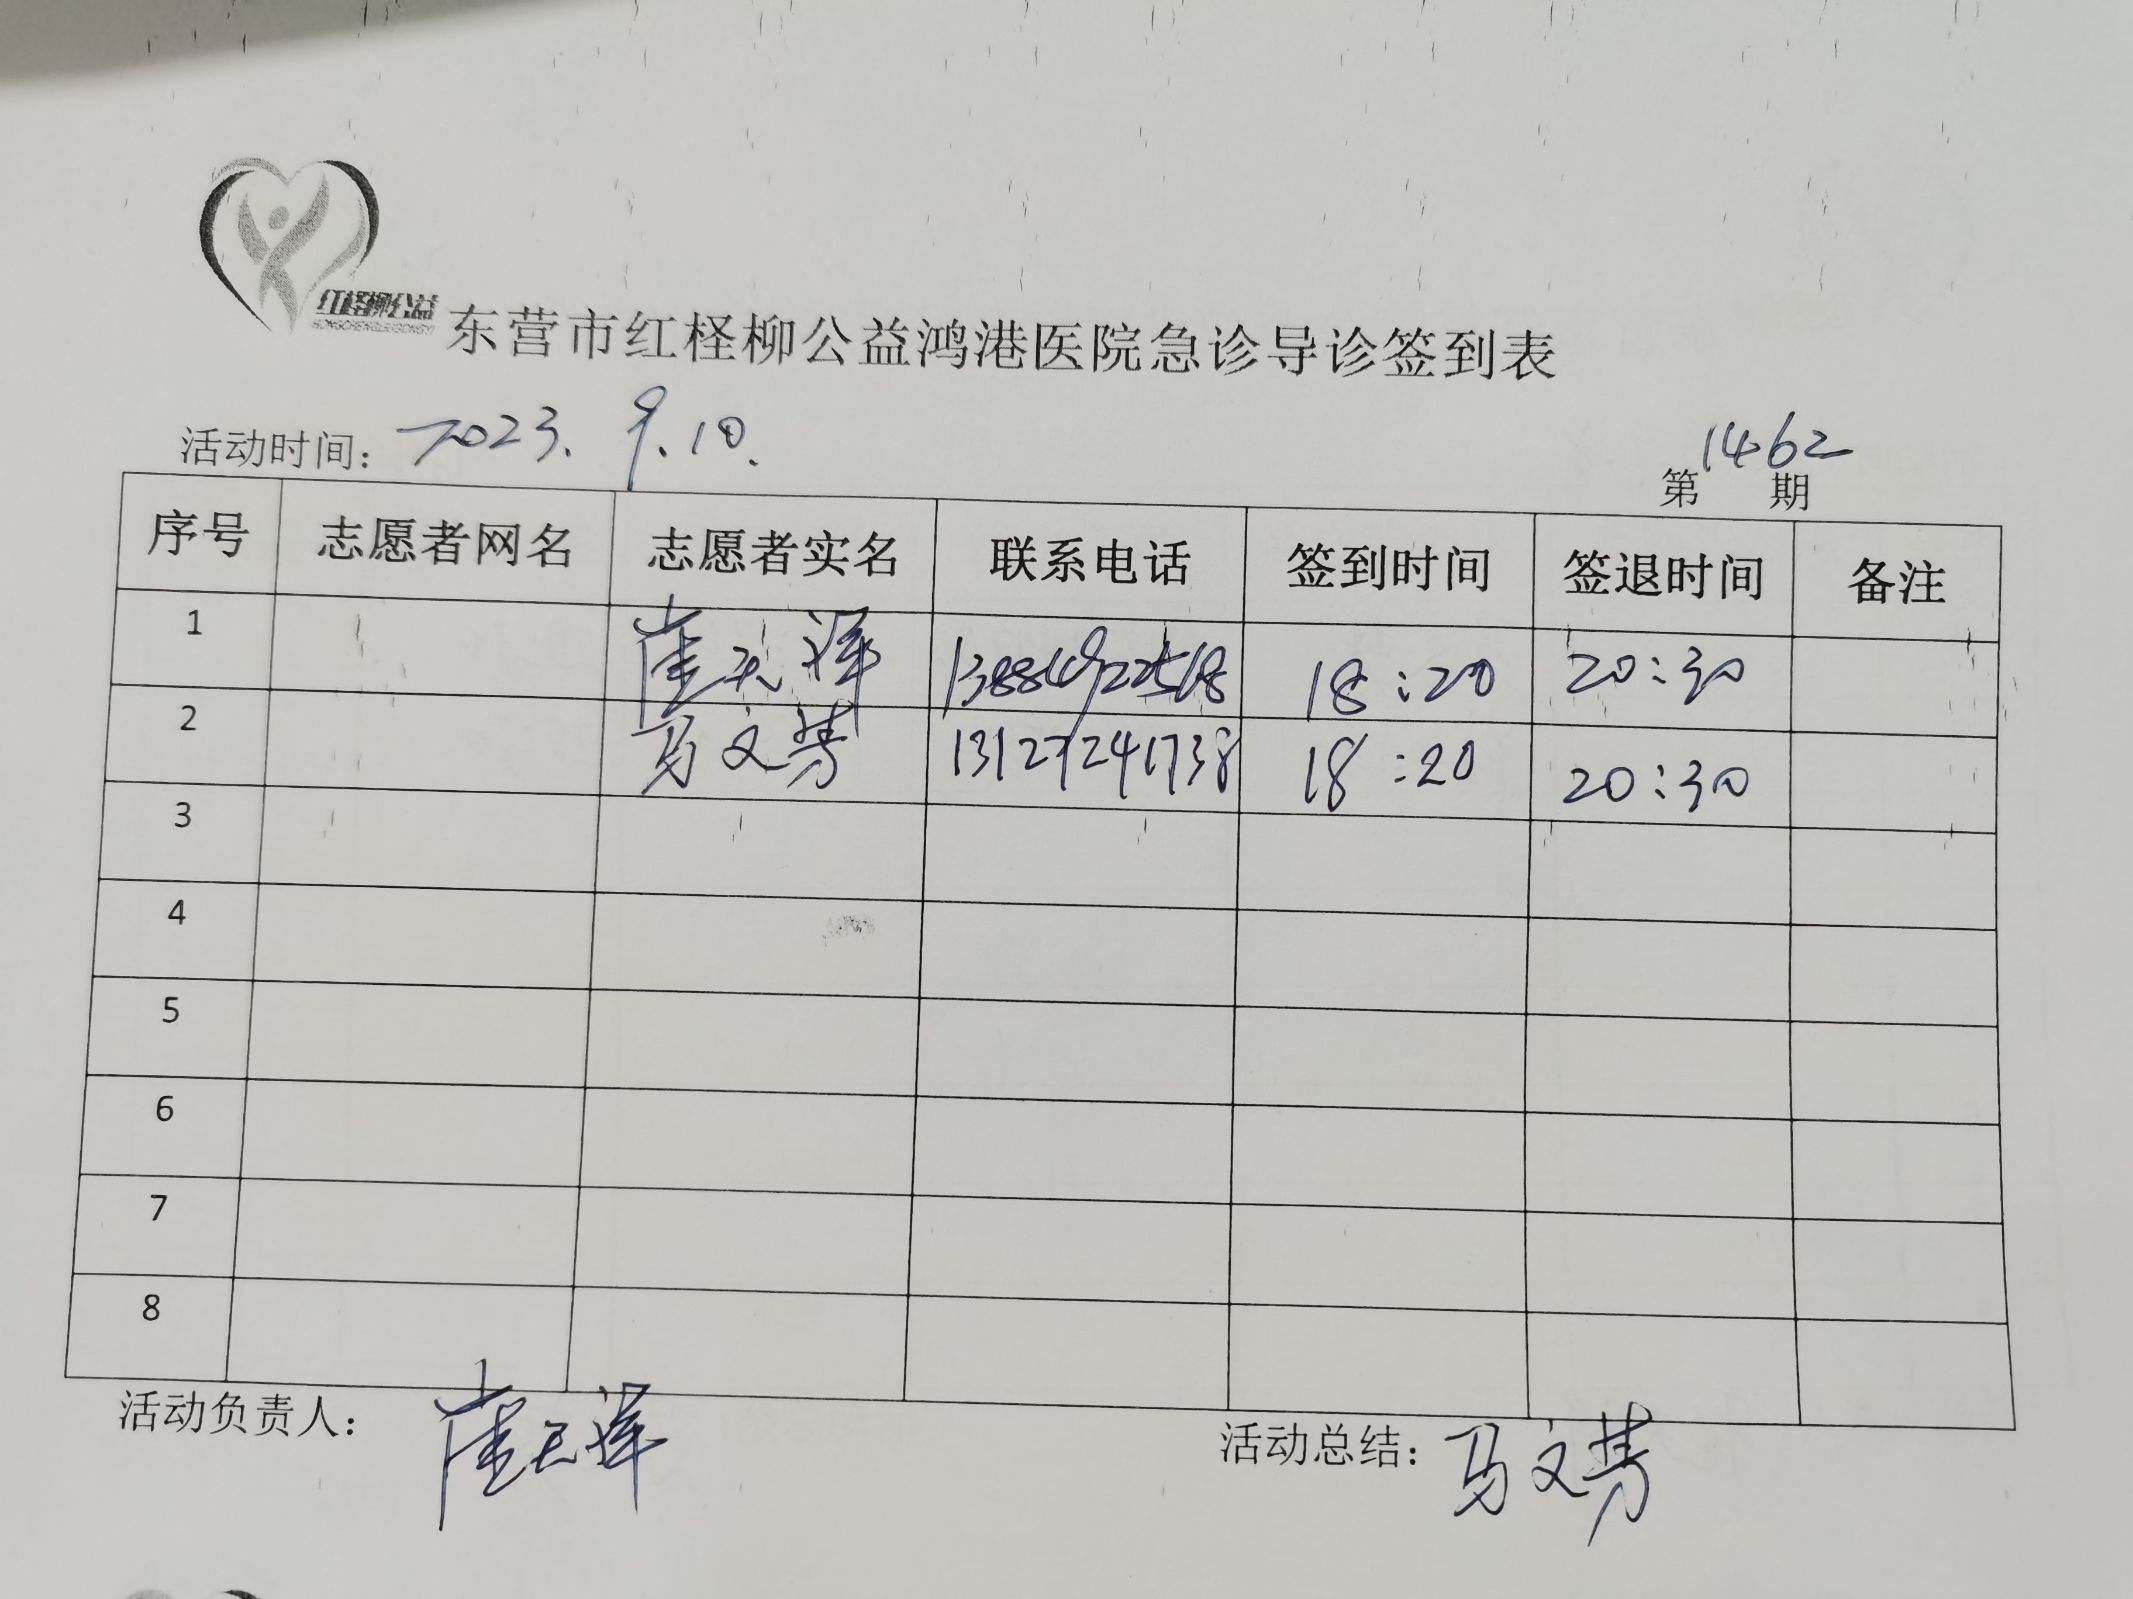 红柽柳公益
东营市红柽柳公益鸿港医院急诊导诊签到表
活动时间: 2023.9.10.
第1462期
序号 志愿者网名 志愿者实名 联系电话 签到时间 签退时间 备注
1 崔天泽 18:20 20:30
2 马文芳 13127241738 18:20 20:30
3
4
5
6
7
8
活动负责人: 崔天泽 活动总结: 马文芳